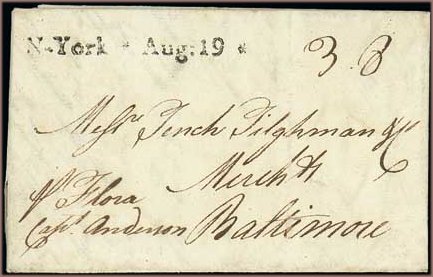 N-York * Aug: 19 *
3.8
Messrs Tench Tilghman & Co
Merchts
pr Flora
Capt. Anderson Baltimore